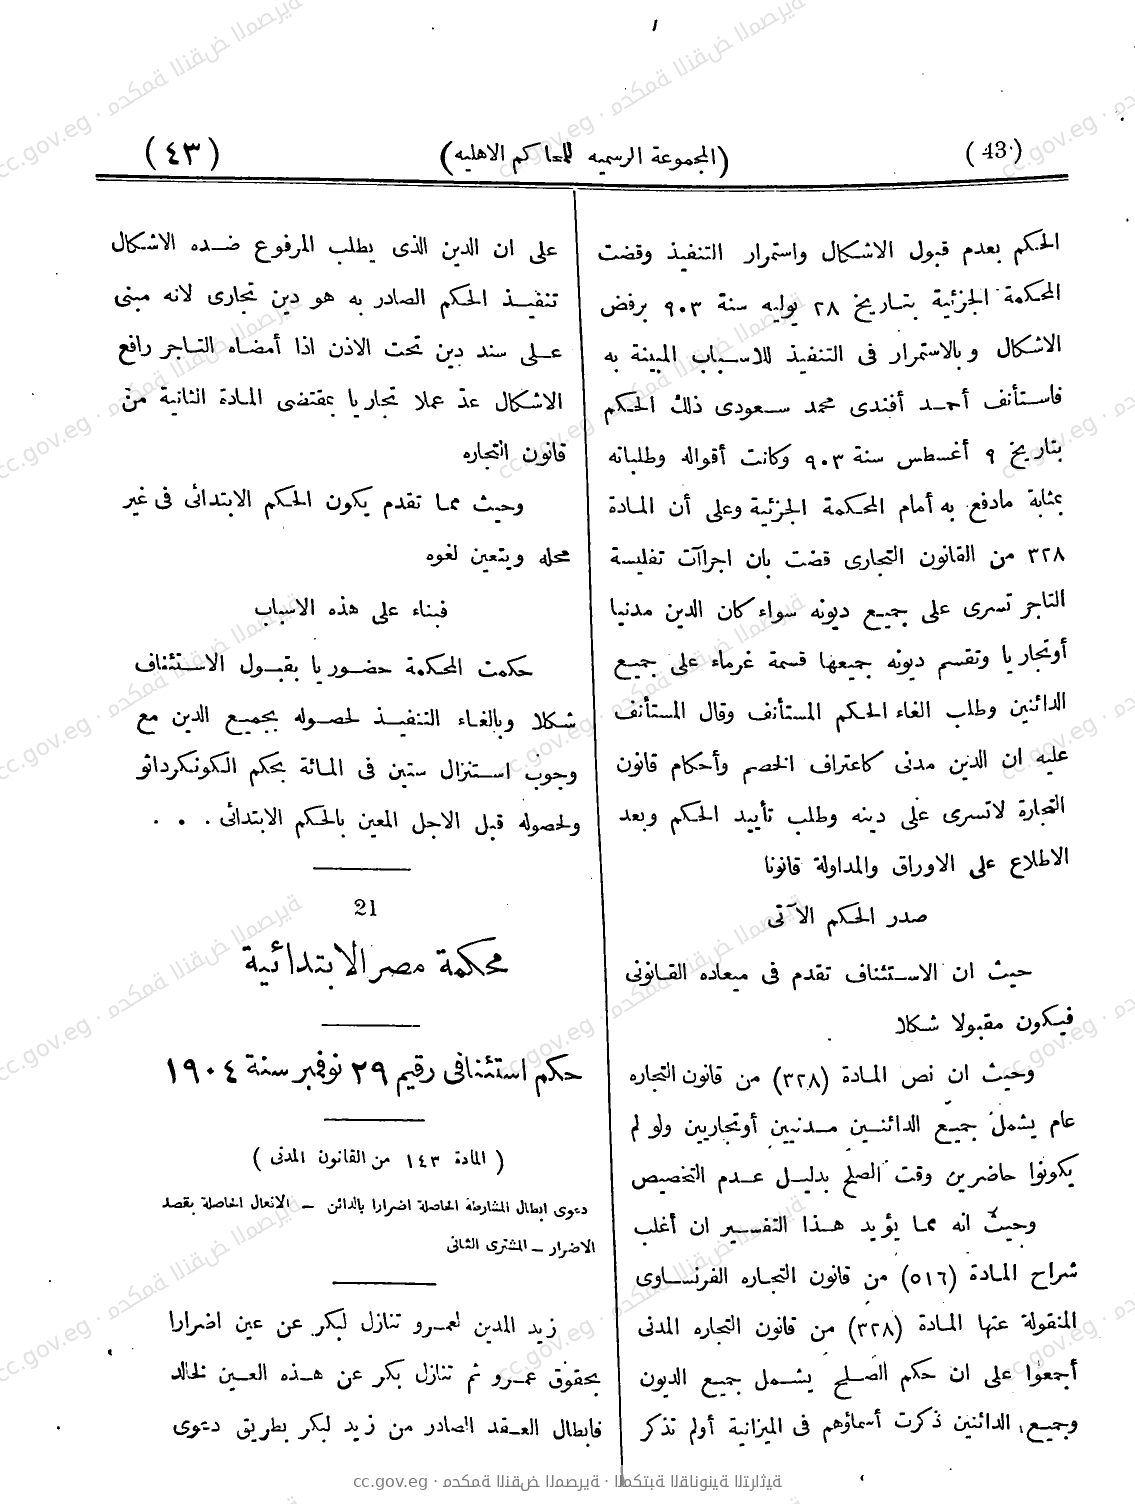 (43) (المجموعة الرسميه للمحاكم الاهليه) (٤٣)
الحكم بعدم قبول الاشكال واستمرار التنفيذ وقضت
المحكمة الجزئية بتاريخ ٢٨ يوليه سنة ٩٠٣ برفض
الاشكال وبالاستمرار فى التنفيذ للاسباب المبينة به
فاستأنف أحمد أفندى محمد سعودى ذلك الحكم
بتاريخ ٩ أغسطس سنة ٩٠٣ وكانت أقواله وطلباته
بمثابة مادفع به أمام المحكمة الجزئية وعلى أن المادة
٣٢٨ من القانون التجارى قضت بان اجراآت تفليسة
التاجر تسرى على جميع ديونه سواء كان الدين مدنيا
أوتجاريا وتقسم ديونه جميعها قسمة غرماء على جميع
الدائنين وطلب الغاء الحكم المستأنف وقال المستأنف
عليه ان الدين مدنى كاعتراف الخصم وأحكام قانون
التجارة لاتسرى على دينه وطلب تأييد الحكم وبعد
الاطلاع على الاوراق والمداولة قانونا
صدر الحكم الآتى
حيث ان الاستئناف تقدم فى ميعاده القانونى
فيكون مقبولا شكلا
وحيث ان نص المادة (٣٢٨) من قانون التجاره
عام يشمل جميع الدائنين مدنيين أوتجاريين ولو لم
يكونوا حاضرين وقت الصلح بدليل عدم التخصيص
وحيث انه مما يؤيد هذا التفسير ان أغلب
شراح المادة (٥١٦) من قانون التجاره الفرنساوى
المنقولة عنها المادة (٣٢٨) من قانون التجاره المدنى
أجمعوا على ان حكم الصلح يشمل جميع الديون
وجميع الدائنين ذكرت أسماؤهم فى الميزانية أولم تذكر
على ان الدين الذى يطلب المرفوع ضده الاشكال
تنفيذ الحكم الصادر به هو دين تجارى لانه مبنى
على سند دين تحت الاذن اذا أمضاه التاجر رافع
الاشكال عد عملا تجاريا بمقتضى المادة الثانية من
قانون التجاره
وحيث مما تقدم يكون الحكم الابتدائى فى غير
محله ويتعين لغوه
فبناء على هذه الاسباب
حكمت المحكمة حضوريا بقبول الاستئناف
شكلا وبالغاء التنفيذ لحصوله بجميع الدين مع
وجوب استنزال ستين فى المائة بحكم الكونكرداتو
ولحصوله قبل الاجل المعين بالحكم الابتدائى . . .
21
محكمة مصر الابتدائية
حكم استئنافى رقيم ٢٩ نوفمبر سنة ١٩٠٤
( المادة ١٤٣ من القانون المدنى )
دعوى ابطال المشارطة الحاصلة اضرارا بالدائن – الافعال الحاصلة بقصد
الاضرار – المشترى الثانى
زيد المدين لعمرو تنازل لبكر عن عين اضرارا
بحقوق عمرو ثم تنازل بكر عن هذه العين لخالد
فابطال العقد الصادر من زيد لبكر بطريق دعوى